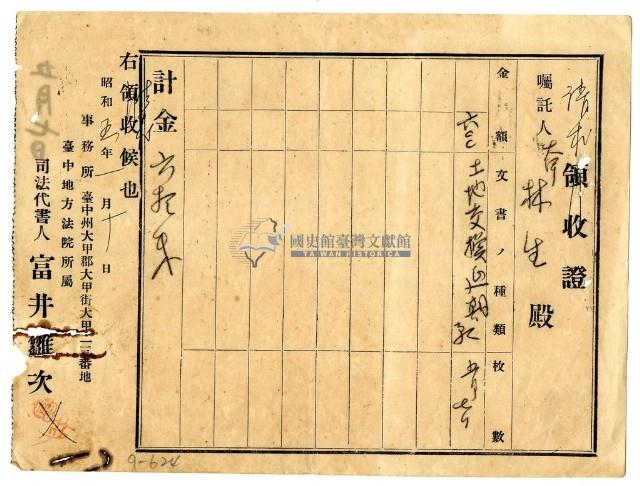 領收證
囑託人 李林生 殿
金額 文書ノ種類 枚數
六〇 土地交換
計金
右領收候也
昭和五年一月十日
事務所 臺中州大甲郡大甲街大甲二三番地
臺中地方法院所屬
司法代書人 富井雛次
五月七日
國史館臺灣文獻館
TAIWAN HISTORICA
9-624